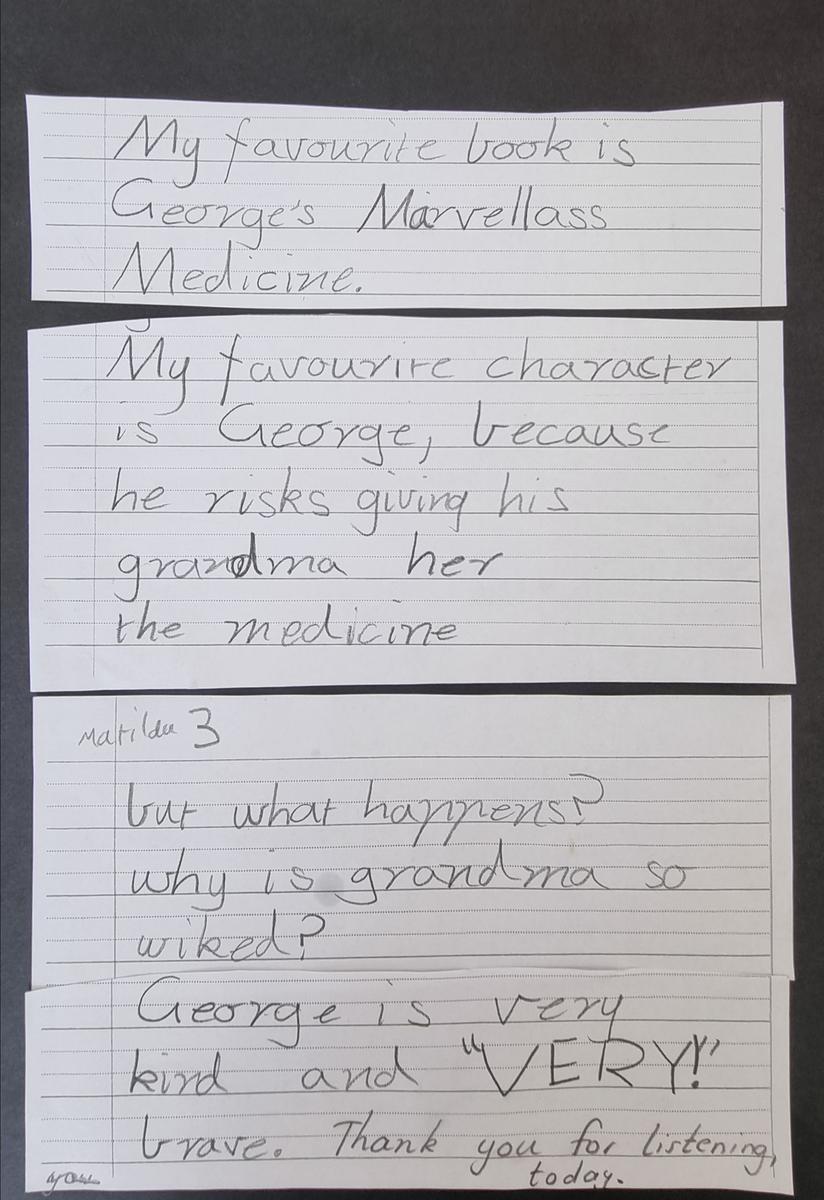 My favourite book is
George's Marvellass
Medicine.
My favourite character
is George, because
he risks giving his
grandma her
the medicine
Matilda 3
but what happens?
why is grandma so
wiked?
George is very
kind and "VERY!"
brave. Thank you for listening,
you today.